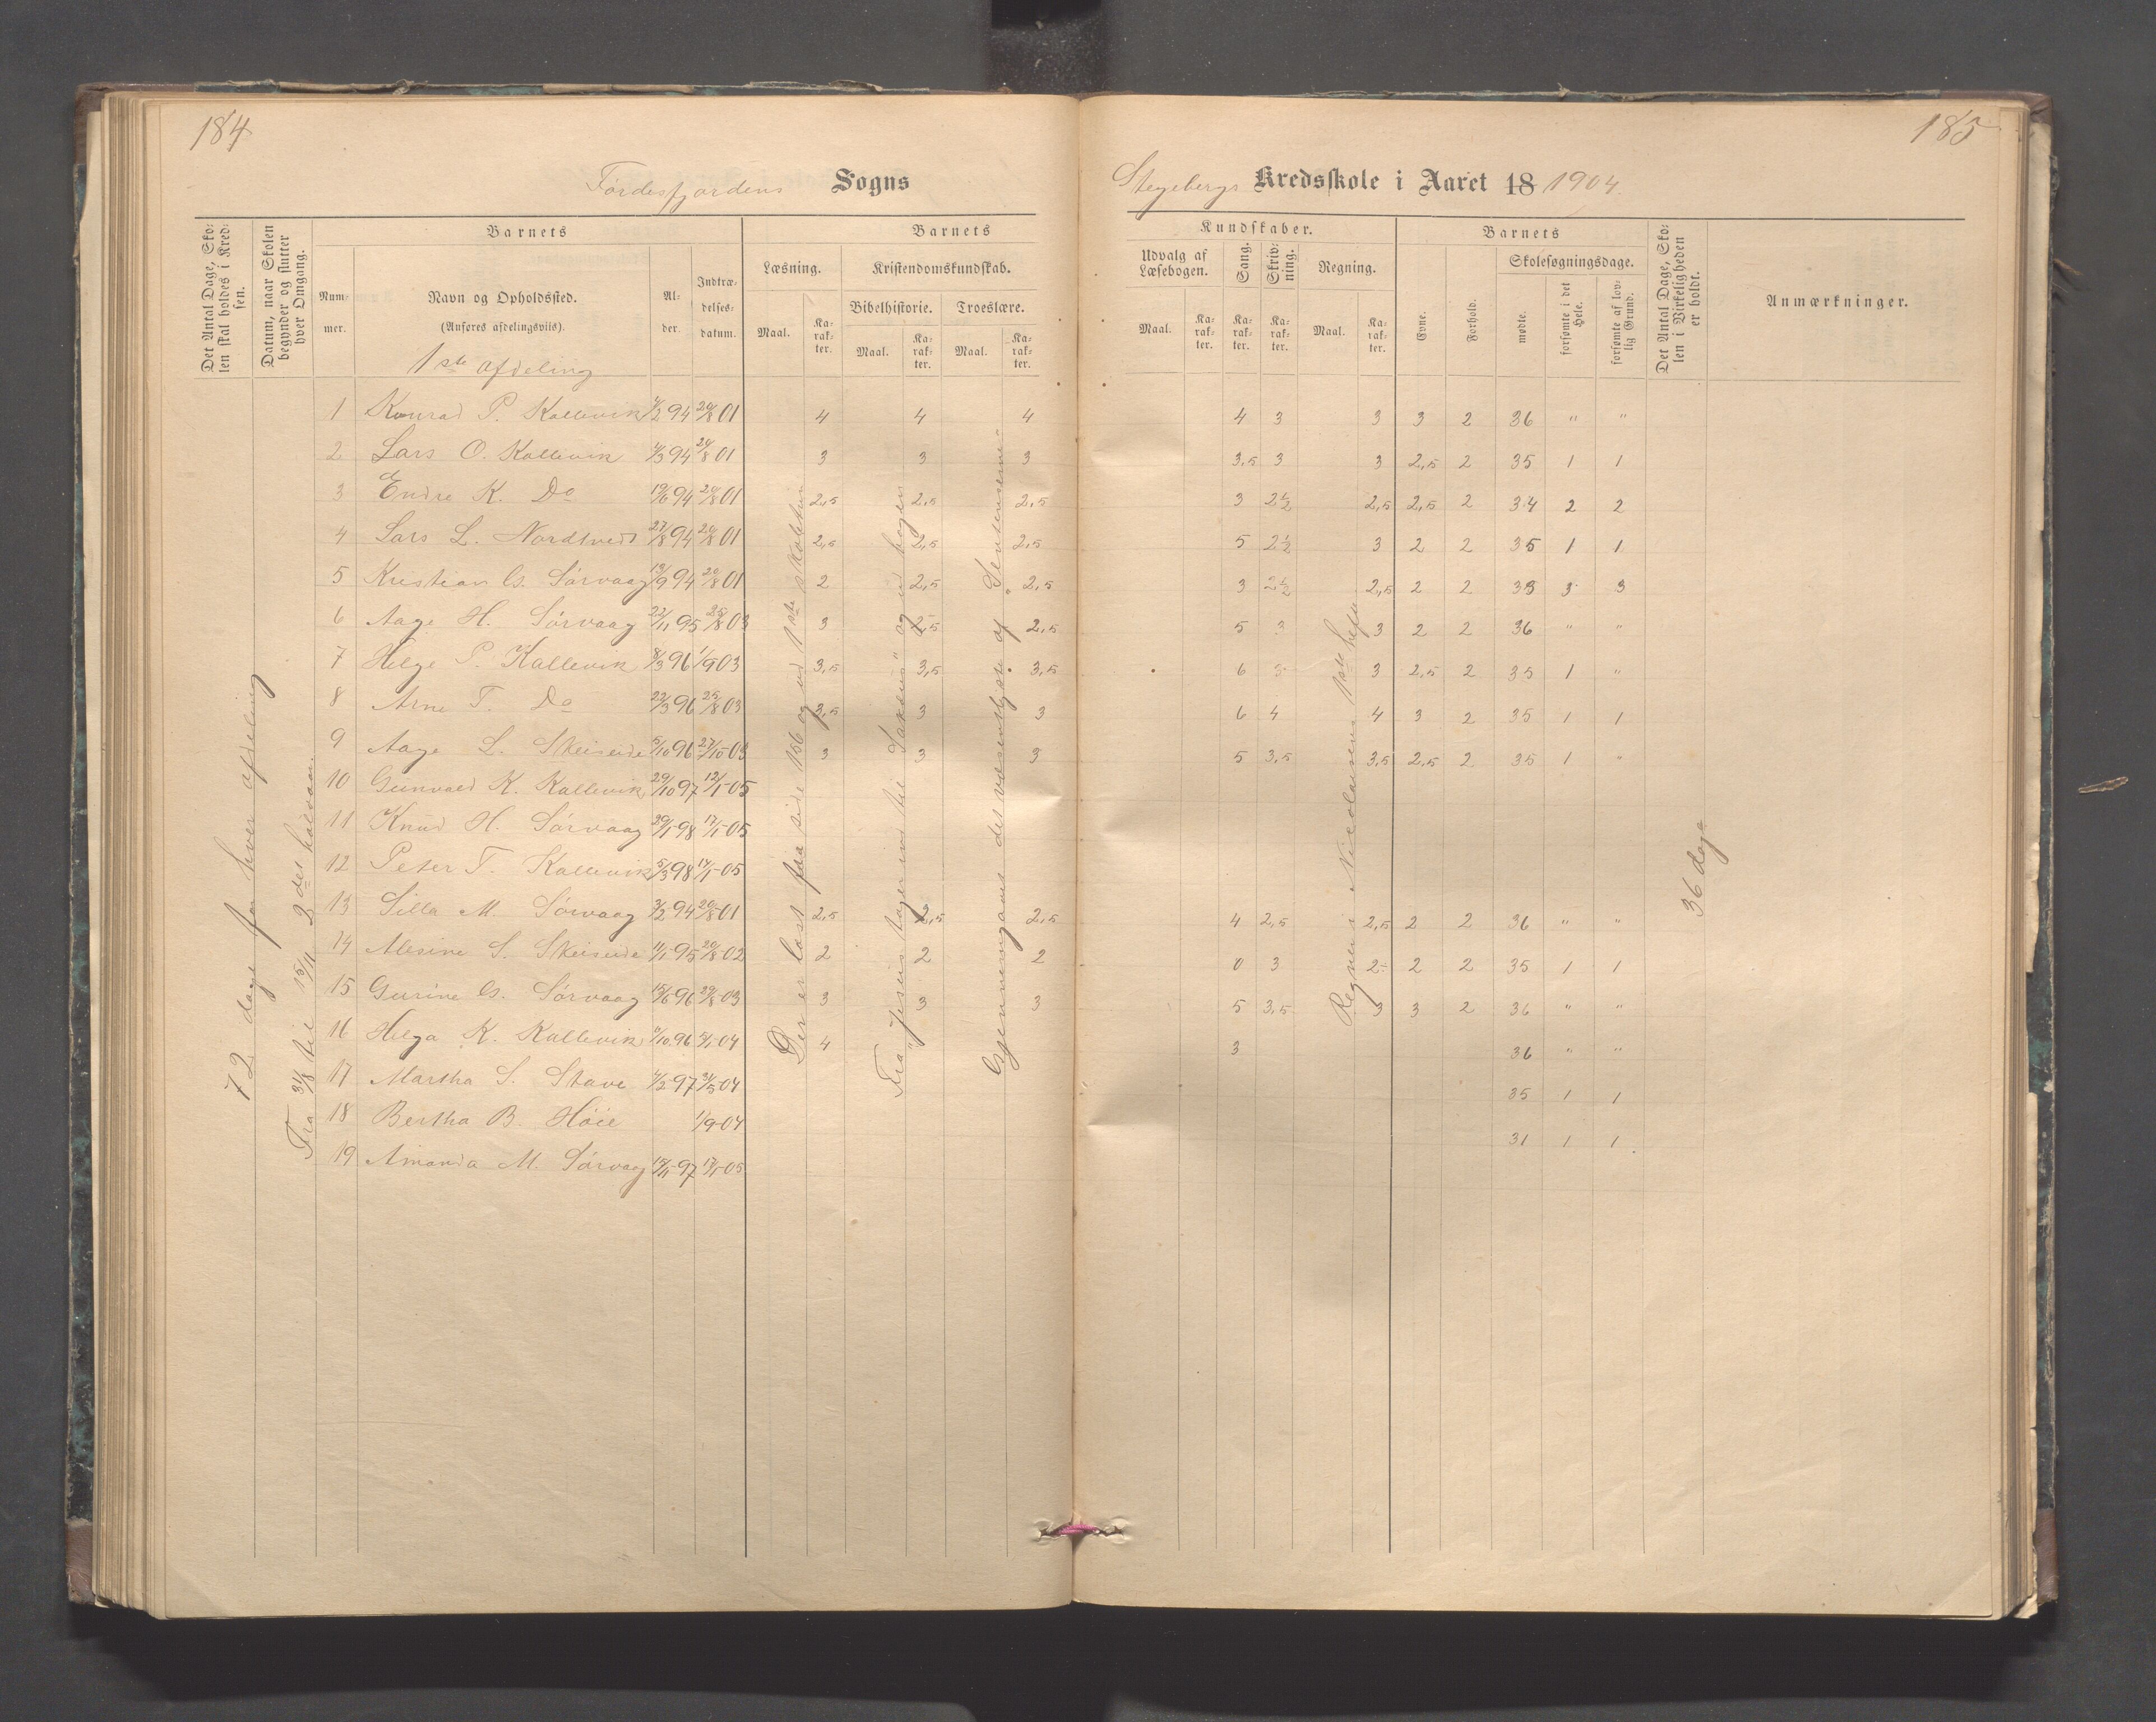 184
185
Fördesfjordens Sogns
Stegebergs Kredsskole i Aaret 18 1904.
Det Antal Dage, Sko-
len skal holdes i Kred-
sen.
Datum, naar Skolen
begynder og slutter
hver Omgang.
Barnets
Num-
mer.
Navn og Opholdssted.
(Anføres afdelingsviis).
1ste afdeling
Al-
der.
Indtræ-
delses-
datum.
Barnets
Læsning.
Maal.
Ka-
rak-
ter.
Kristendomskundskab.
Bibelhistorie.
Maal.
Ka-
rak-
ter.
Troeslære.
Maal.
Ka-
rak-
ter.
Kundskaber.
Udvalg af
Læsebogen.
Maal.
Ka-
rak-
ter.
Sang.
Ka-
rak-
ter.
Skriv-
ning.
Ka-
rak-
ter.
Regning.
Maal.
Ka-
rak-
ter.
Barnets
Evne.
Forhold.
Skolesøgningsdage.
mødte.
forsømte i det
Hele.
forsømte af lov-
lig Grund.
Det Antal Dage, Sko-
len i Virkeligheden
er holdt.
Anmærkninger.
72 dage for hver afdeling
Fra 31/8 til 15/11 2det halvaar.
1 Konrad P. Kallevik 4/2 94 20/8 01 4 4 4 4 3 3 3 2 36 " "
2 Lars O. Kallevik 4/3 94 20/8 01 3 3 3 3,5 3 3 2,5 2 35 1 1
3 Endre K. Do 19/6 94 20/8 01 2,5 2,5 2,5 3 2½ 2,5 2,5 2 34 2 2
4 Lars L. Nordtvedt 27/8 94 20/8 01 2,5 2,5 2,5 5 2½ 3 2 2 35 1 1
5 Kristian G. Sörvaag 13/9 94 20/8 01 2 2,5 2,5 3 2½ 2,5 2 2 33 3 3
6 Aage H. Sörvaag 22/11 95 25/8 03 3 2,5 2,5 5 3 3 2 2 36 " "
7 Helge P. Kallevik 8/3 96 1/9 03 3,5 3,5 3,5 6 3 3 2,5 2 35 1 "
8 Arne T. Do 22/3 96 25/8 03 3,5 3 3 6 4 4 3 2 35 1 1
9 Aage L. Skeiseide 5/10 96 27/10-03 3 3 3 5 3,5 3,5 2,5 2 35 1 "
10 Gunvald K. Kallevik 29/10 97 12/1-05
11 Knud H. Sörvaag 29/1-98 17/1-05
12 Peter T. Kallevik 5/3 98 17/1-05
13 Silla M. Sörvaag 3/2 94 20/8-01 2,5 2,5 2,5 4 2,5 2,5 2 2 36 " "
14 Alesine S. Skeiseide 11/1-95 20/8-02 2 2 2 0 3 2- 2 2 35 1 1
15 Gurine G. Sörvaag 15/6 96 29/8-03 3 3 3 5 3,5 3 3 2 36 " "
16 Helga K. Kallevik 9/10.96 5/1-04 4 3 36 " "
17 Martha S. Stave 4/2-97 31/5-04 35 1 1
18 Bertha B. Höie 1/9-04 31 1 1
19 Amanda M. Sörvaag 15/11-97 17/1-05
Der er læst fra side 156 og ud 1ste skoletrin
Fra „Jesus tager ind til Sakæus" og ud bogen
Gjennemgaaet det væsentligste af „Sentenserne"
Regnet i Nicolaisens 1ste hefte
36 dage